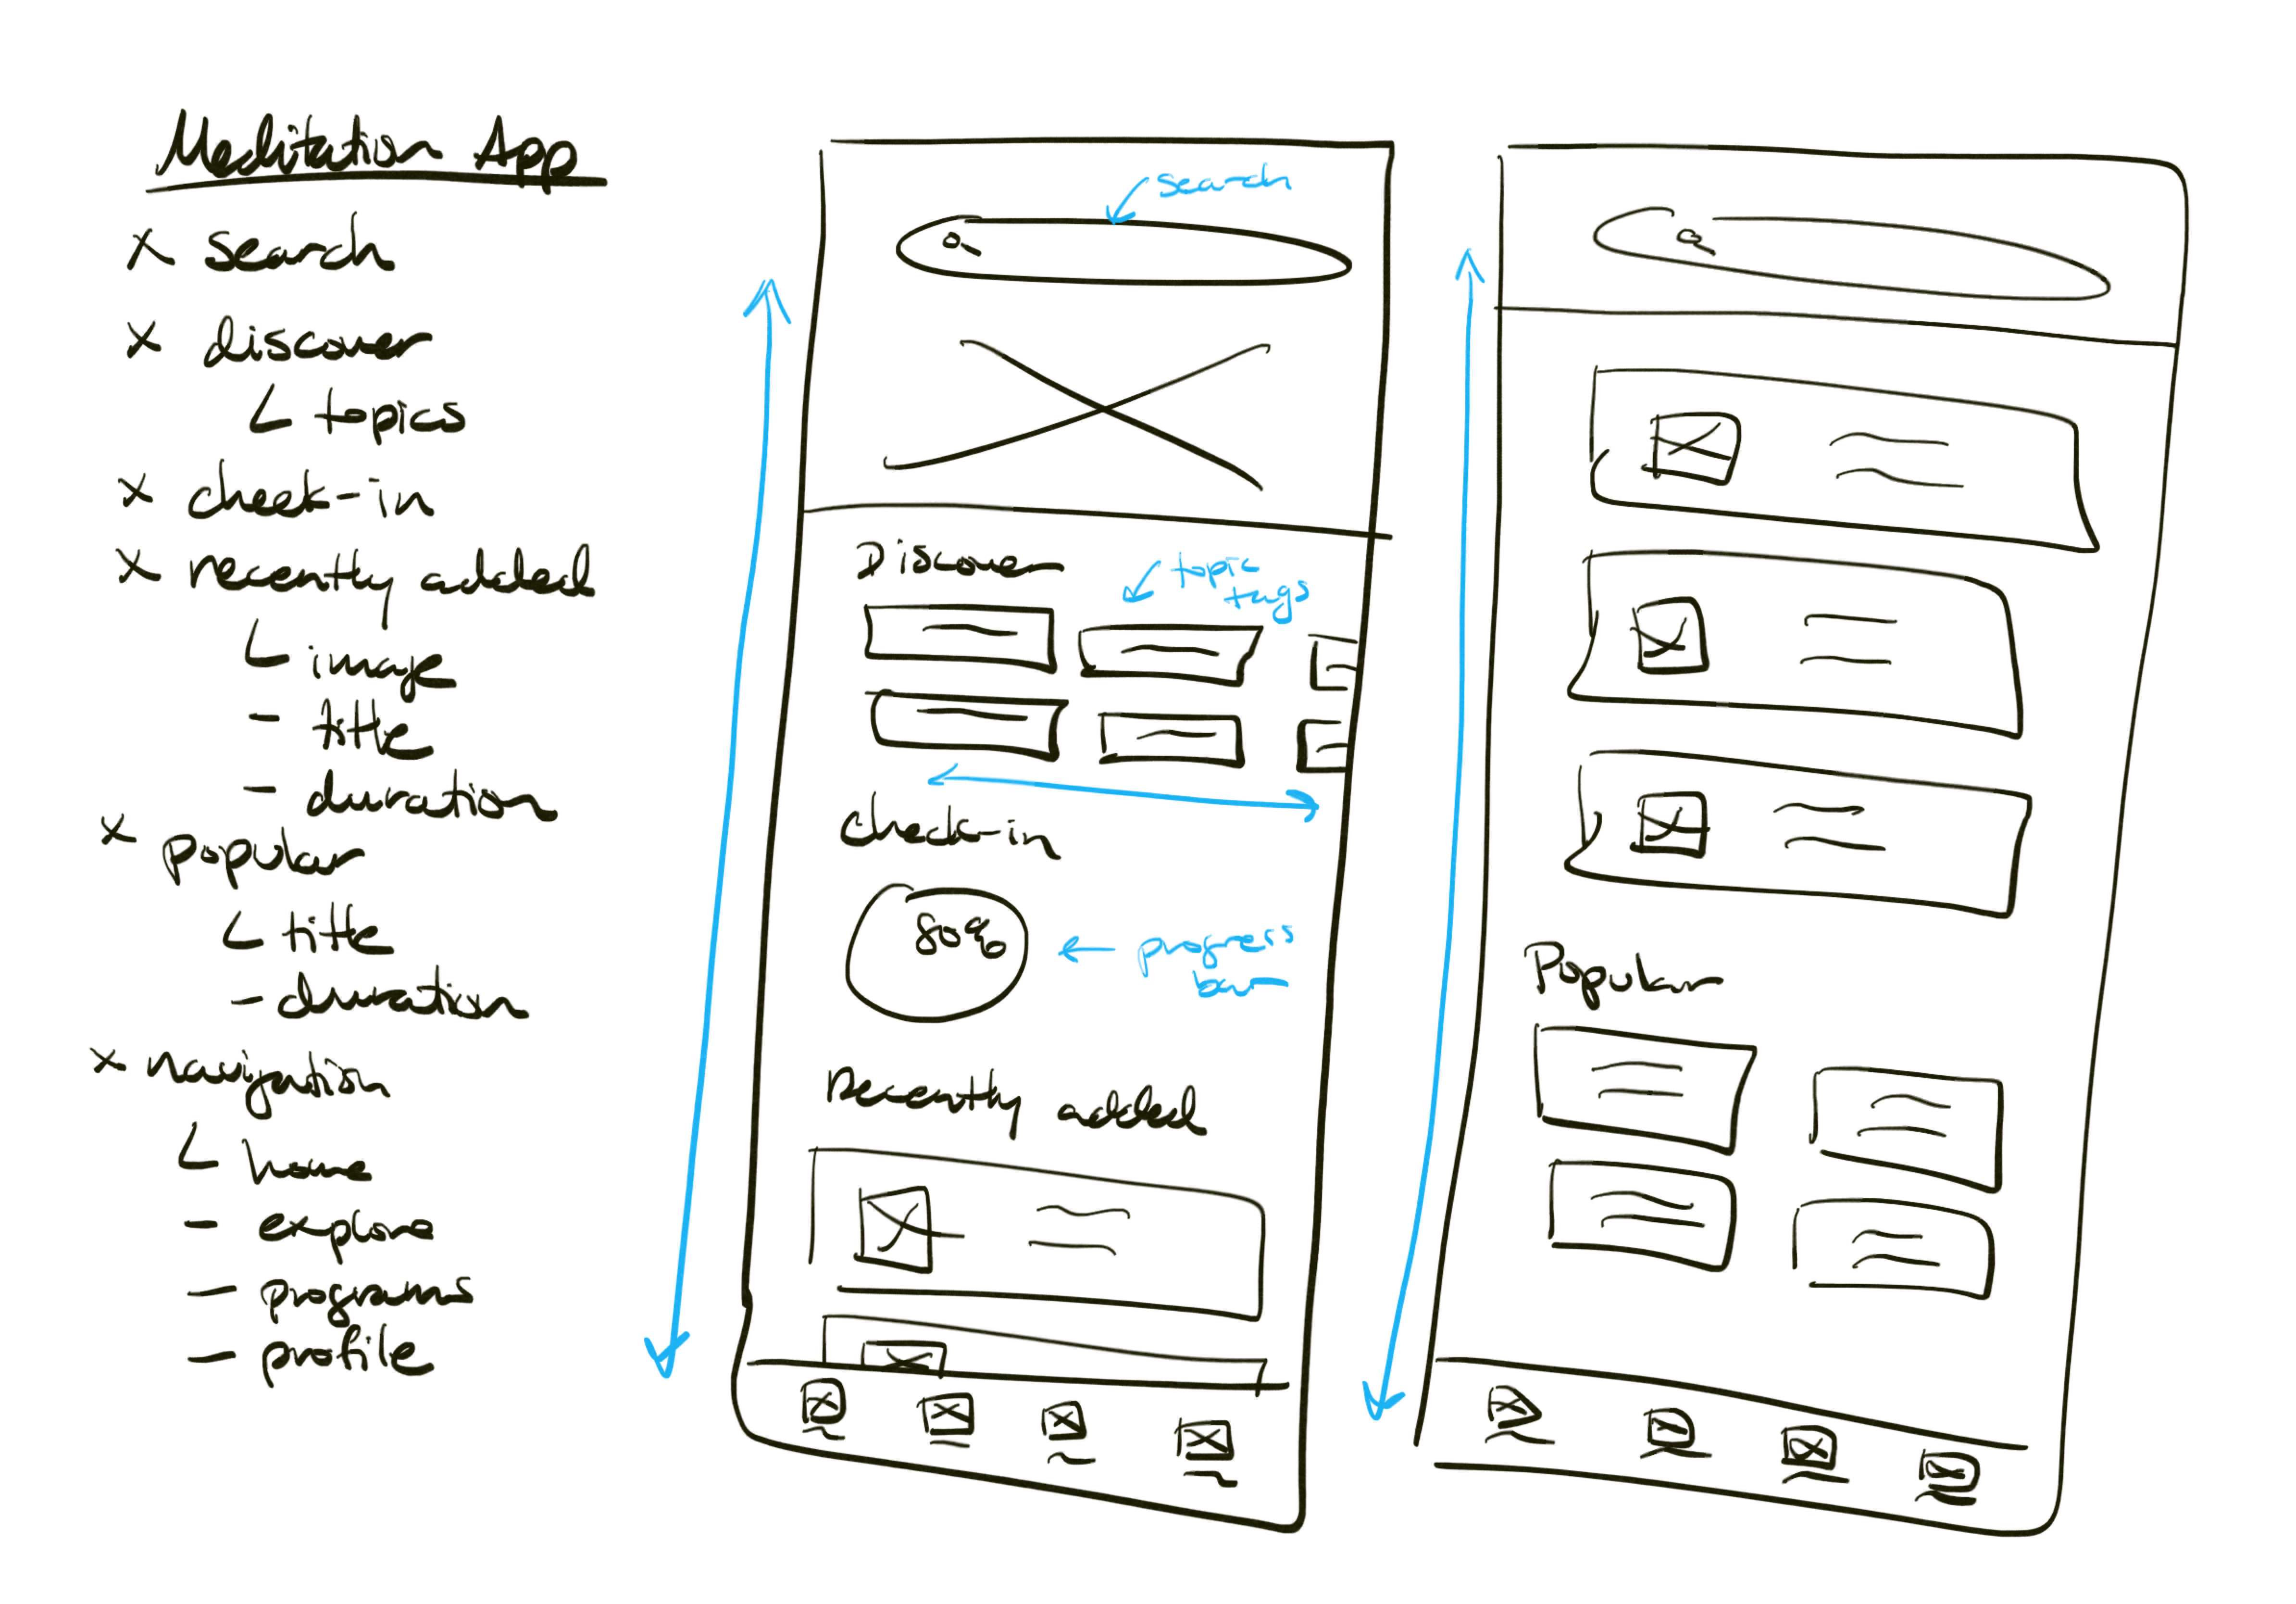 Meditation App
x search
x discover
topics
x check-in
x recently added
image
- title
- duration
x popular
title
- duration
x navigation
home
- explore
- programs
- profile
search
Discover
topic
tags
check-in
80%
progress
bar
Recently added
Popular